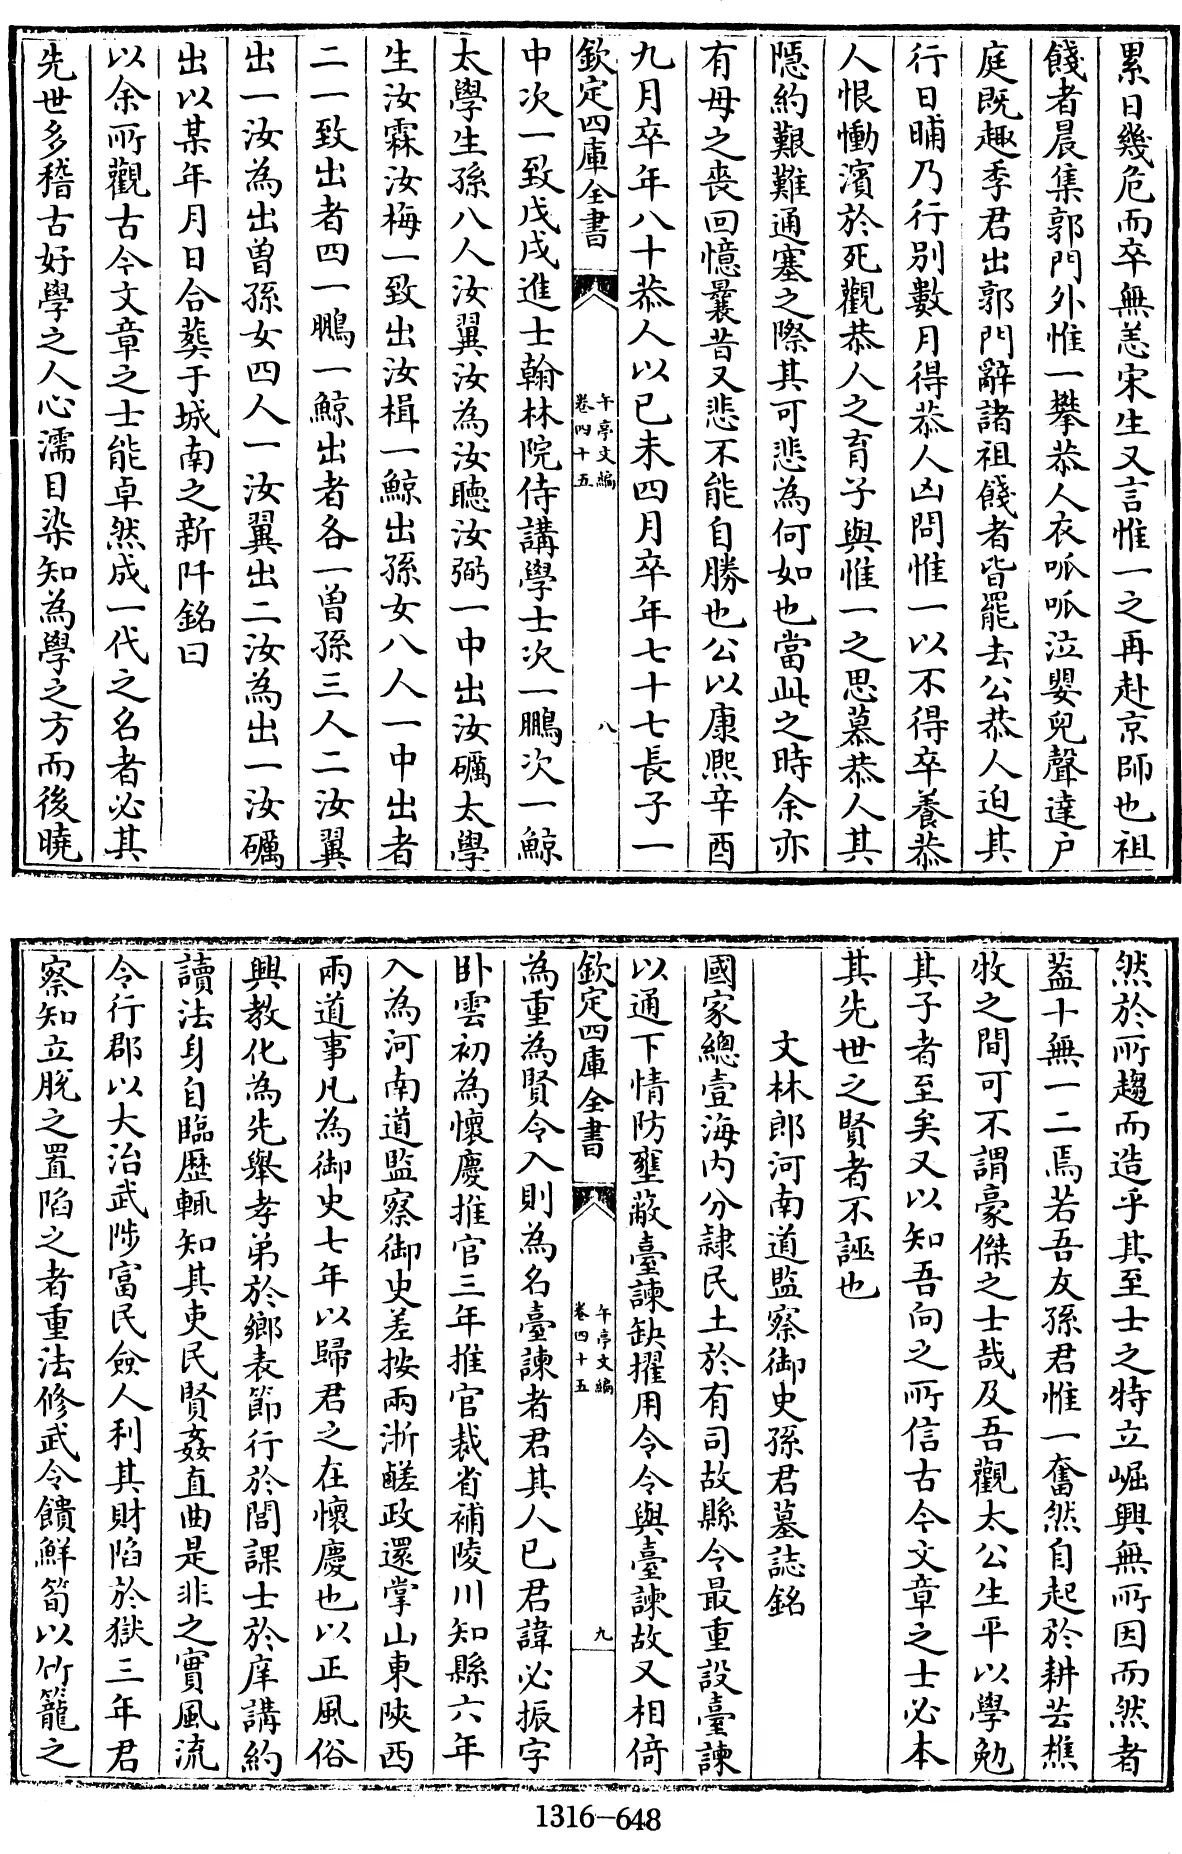 累日幾危而卒無恙宋生又言惟一之再赴京師也祖
餞者晨集郭門外惟一攀恭人衣呱呱泣嬰兒聲達户
庭既趣季君出郭門辭諸祖餞者皆罷去公恭人迫其
行日晡乃行别數月得恭人凶問惟一以不得卒養恭
人恨慟濱於死觀恭人之育子與惟一之思慕恭人其
隱約艱難通塞之際其可悲為何如也當此之時余亦
有母之喪回憶曩昔又悲不能自勝也公以康熙辛酉
九月卒年八十恭人以己未四月卒年七十七長子一
欽定四庫全書
午亭文編
卷四十五
八
中次一致戊戌進士翰林院侍講學士次一鵬次一鯨
太學生孫八人汝翼汝為汝聽汝弼一中出汝礪太學
生汝霖汝梅一致出汝楫一鯨出孫女八人一中出者
二一致出者四一鵬一鯨出者各一曾孫三人二汝翼
出一汝為出曾孫女四人一汝翼出二汝為出一汝礪
出以某年月日合葬于城南之新阡銘曰
以余所觀古今文章之士能卓然成一代之名者必其
先世多稽古好學之人心濡目染知為學之方而後曉
然於所趨而造乎其至士之特立崛興無所因而然者
蓋十無一二焉若吾友孫君惟一奮然自起於耕芸樵
牧之間可不謂豪傑之士哉及吾觀太公生平以學勉
其子者至矣又以知吾向之所信古今文章之士必本
其先世之賢者不誣也
文林郎河南道監察御史孫君墓誌銘
國家總壹海内分隷民土於有司故縣令最重設臺諫
以通下情防壅蔽臺諫缺擢用令令與臺諫故又相倚
欽定四庫全書
午亭文編
卷四十五
九
為重為賢令入則為名臺諫者君其人已君諱必振字
卧雲初為懷慶推官三年推官裁省補陵川知縣六年
入為河南道監察御史差按兩浙鹺政還掌山東陝西
兩道事凡為御史七年以歸君之在懷慶也以正風俗
興教化為先舉孝弟於鄉表節行於閭課士於庠講約
讀法身自臨歷輒知其吏民賢姦直曲是非之實風流
令行郡以大治武陟富民僉人利其財陷於獄三年君
察知立脫之置陷之者重法修武令饋鮮筍以竹籠之
1316-648